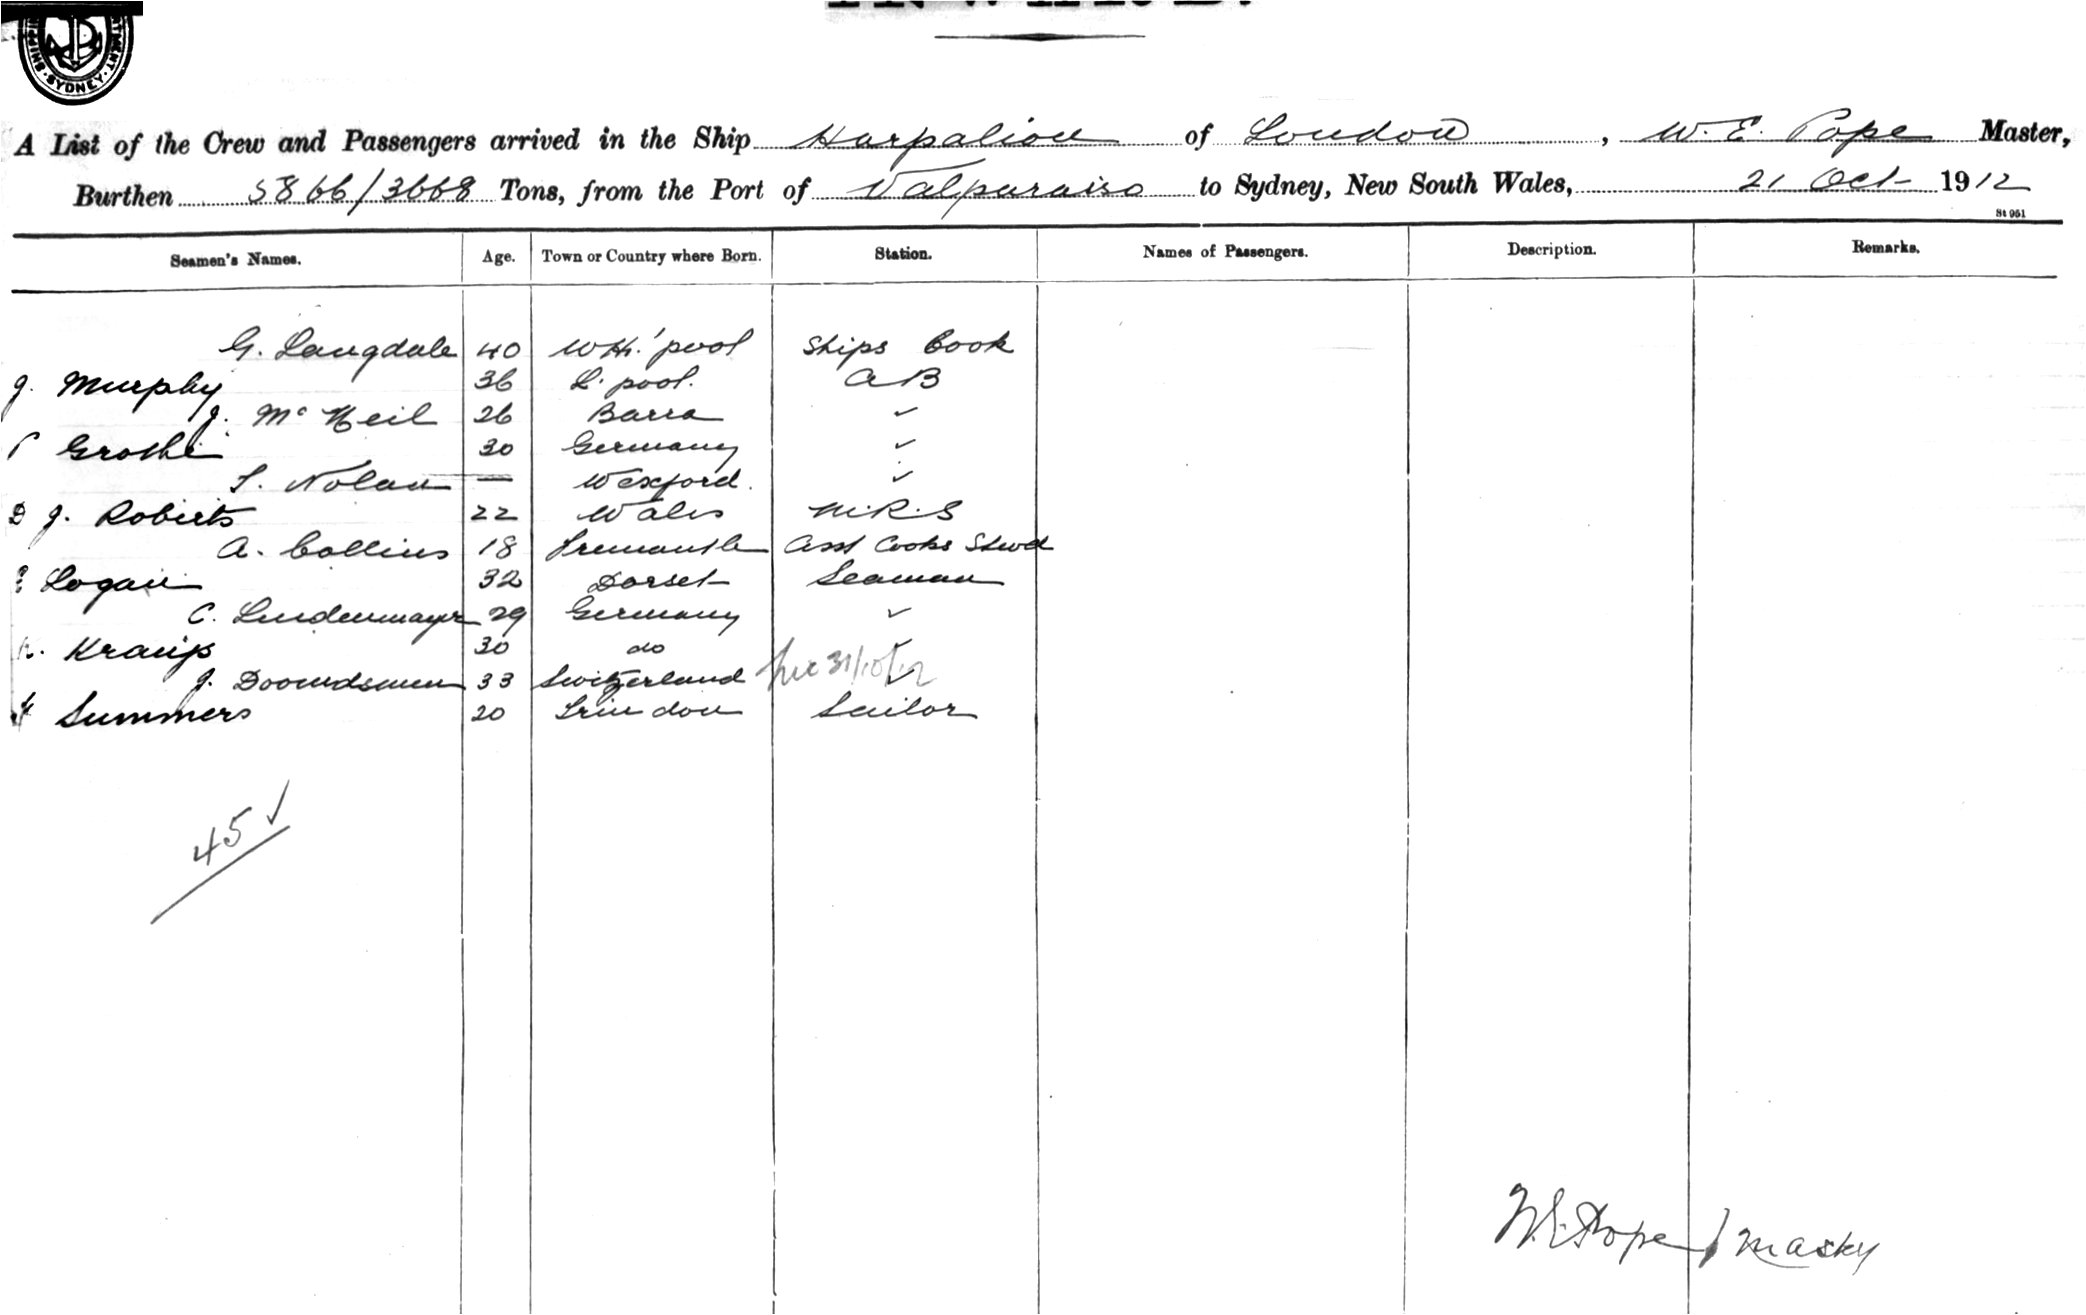 SYDNEY
A List of the Crew and Passengers arrived in the Ship Harpalion of London, W. E. Pope Master,
Burthen 5866/3668 Tons, from the Port of Valparaiso to Sydney, New South Wales, 21 Oct 1912
St 951
Seamen's Names. Age. Town or Country where Born. Station. Names of Passengers. Description. Remarks.
G. Langdale 40 W H.'pool Ships Cook
J. Murphy 36 L'pool. AB
J. McNeil 26 Barra ✓
Grothe 30 Germany ✓
Nolan — Wexford. ✓
D J. Roberts 22 Wales M.R.S
A. Collins 18 Fremantle Asst Cooks Stwd
Logan 32 Dorset Seaman
C. Lindenmayer 29 Germany ✓
30 do ✓
J. 33 Switzerland 31/10/12 ✓
Summers 20 Sailor
45 ✓
W. E. Pope Master